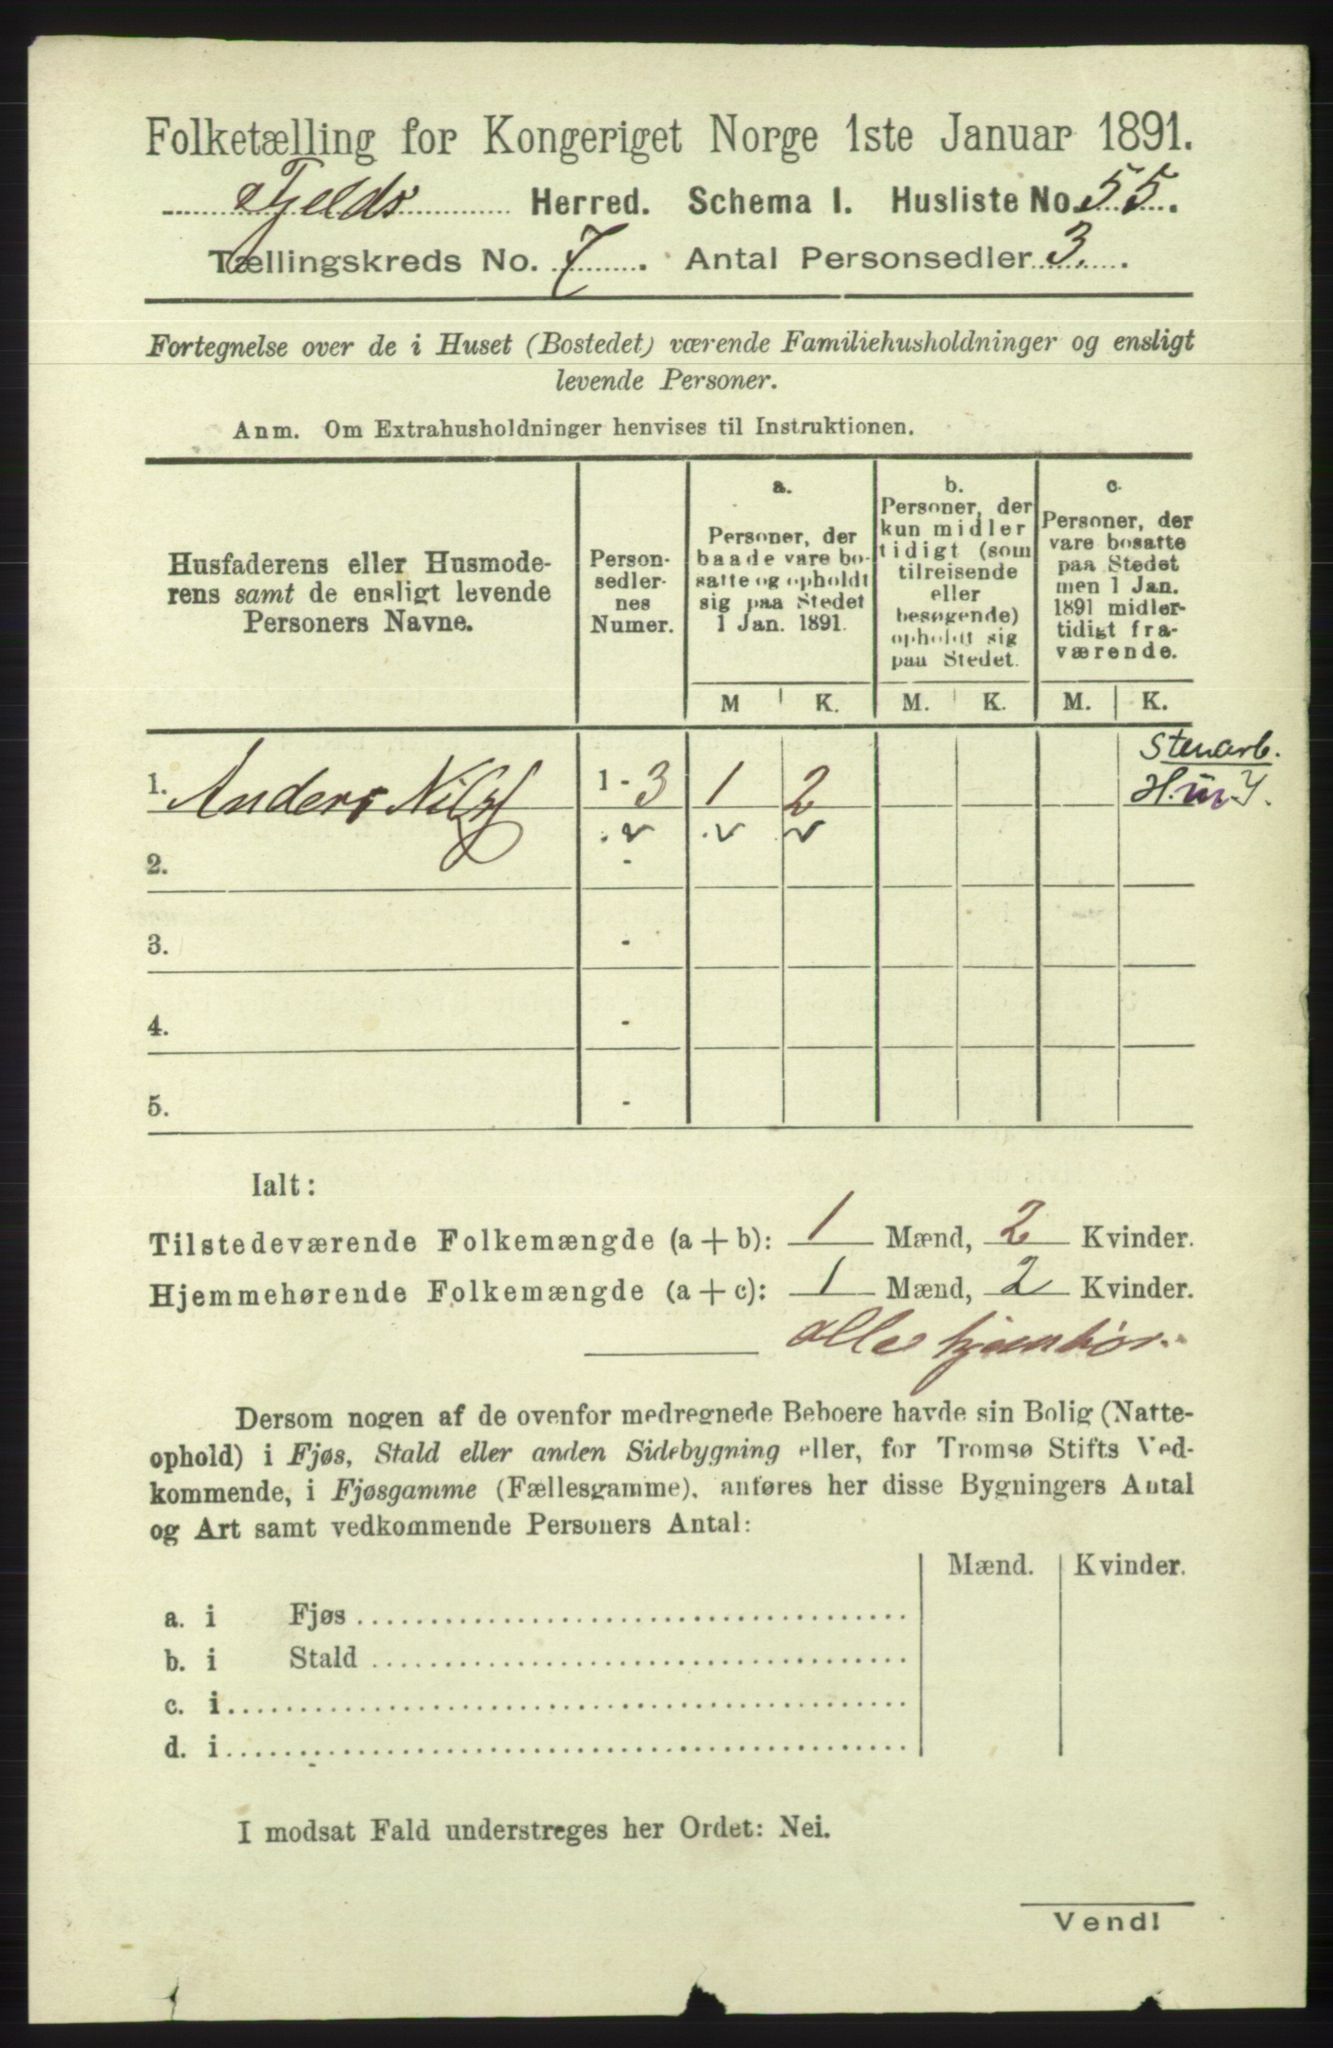 Folketælling for Kongeriget Norge 1ste Januar 1891.
Fjelds Herred. Schema I. Husliste No. 55.
Tællingskreds No. 7. Antal Personsedler 3.
Fortegnelse over de i Huset (Bostedet) værende Familiehusholdninger og ensligt
levende Personer.
Anm. Om Extrahusholdninger henvises til Instruktionen.
Husfaderens eller Husmode-
rens samt de ensligt levende
Personers Navne.
Person-
sedler-
nes
Numer.
a.
Personer, der
baade vare bo-
satte og opholdt
sig paa Stedet
1 Jan. 1891.
b.
Personer, der
kun midler
tidigt (som
tilreisende
eller
besøgende)
opholdt sig
paa Stedet.
c.
Personer, der
vare bosatte
paa Stedet
men 1 Jan.
1891 midler-
tidigt fra-
værende.
M K. M. K. M. K.
Stenarb.
1. Anders Nils 1 - 3 1 2 H.
2. -
3. -
4. -
5. -
Ialt:
Tilstedeværende Folkemængde (a + b): 1 Mænd, 2 Kvinder.
Hjemmehørende Folkemængde (a + c): 1 Mænd, 2 Kvinder.
alle
Dersom nogen af de ovenfor medregnede Beboere havde sin Bolig (Natte-
ophold) i Fjøs, Stald eller anden Sidebygning eller, for Tromsø Stifts Ved-
kommende, i Fjøsgamme (Fællesgamme), anføres her disse Bygningers Antal
og Art samt vedkommende Personers Antal:
Mænd. Kvinder.
a. i Fjøs
b. i Stald
c. i
d. i
I modsat Fald understreges her Ordet: Nei.
Vend!